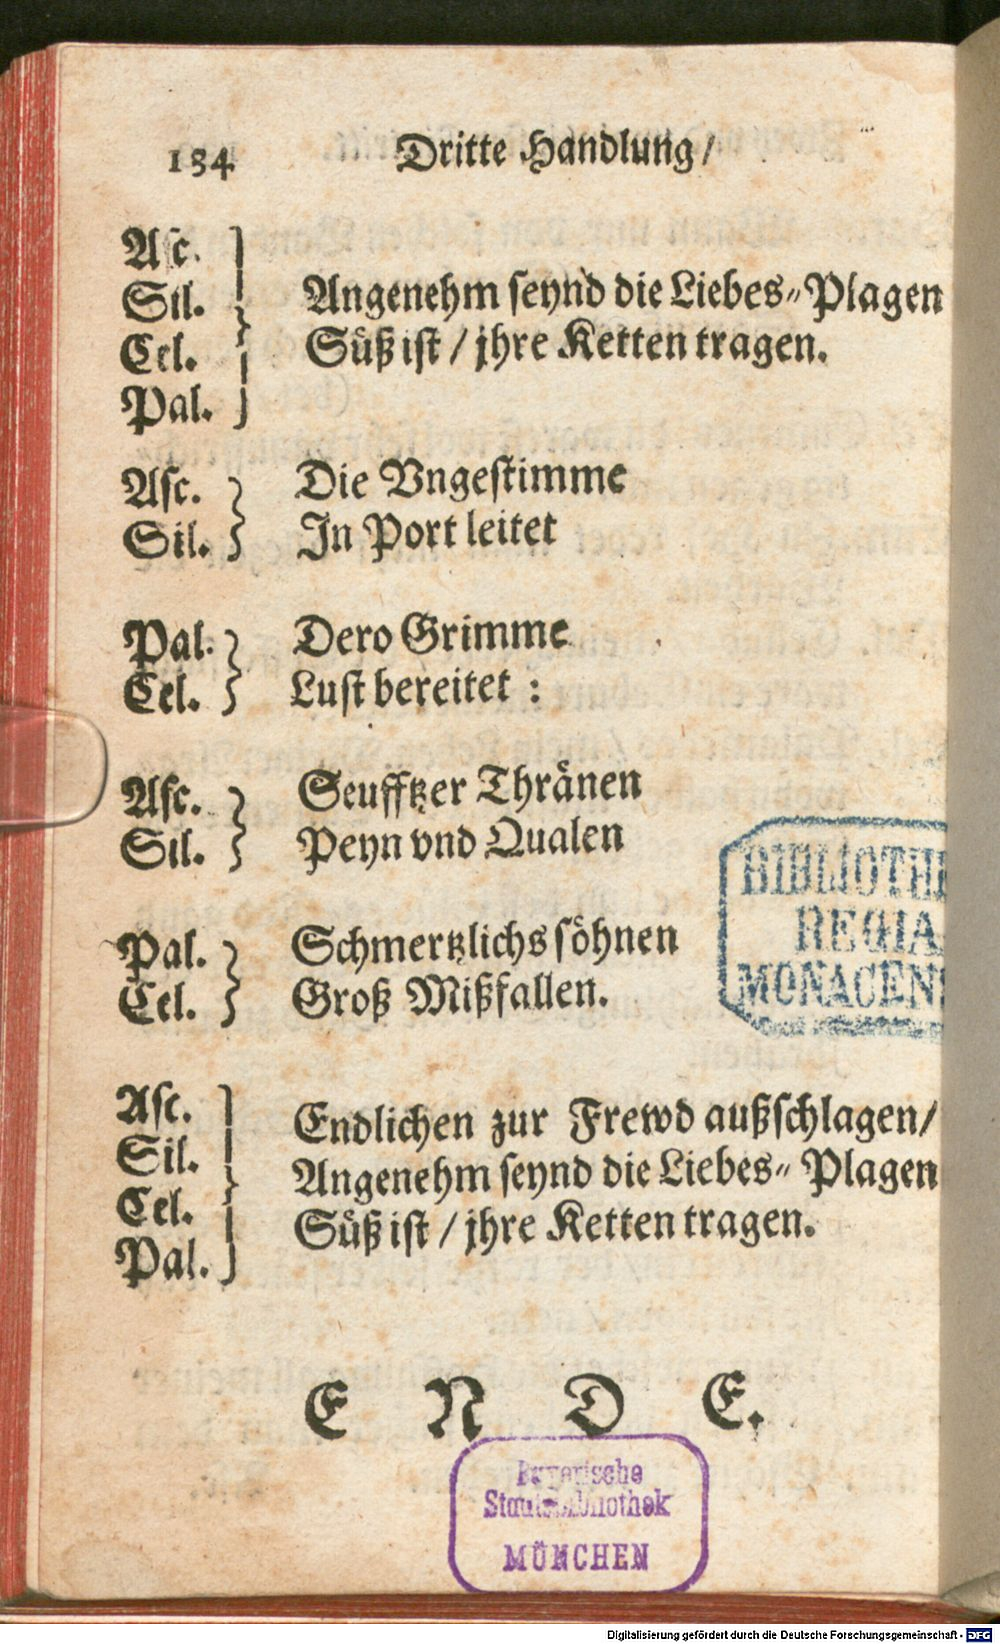 134 Dritte Handlung/
Asc.
Sil. Angenehm seynd die Liebes-Plagen
Cel. Süß ist / jhre Ketten tragen.
Pal.
Asc. Die Vngestimme
Sil. In Port leitet
Pal. Dero Grimme
Cel. Lust bereitet :
Asc. Seufftzer Thränen
Sil. Peyn vnd Qualen
Pal. Schmertzlichs söhnen
Cel. Groß Mißfallen.
Asc.
Endlichen zur Frewd außschlagen/
Sil. Angenehm seynd die Liebes-Plagen
Cel. Süß ist / jhre Ketten tragen.
Pal.
E N D E.
BIBLIOTHE
REGIA
MONACEN
Bayerische
Staatsbibliothek
MÜNCHEN
Digitalisierung gefördert durch die Deutsche Forschungsgemeinschaft - DFG